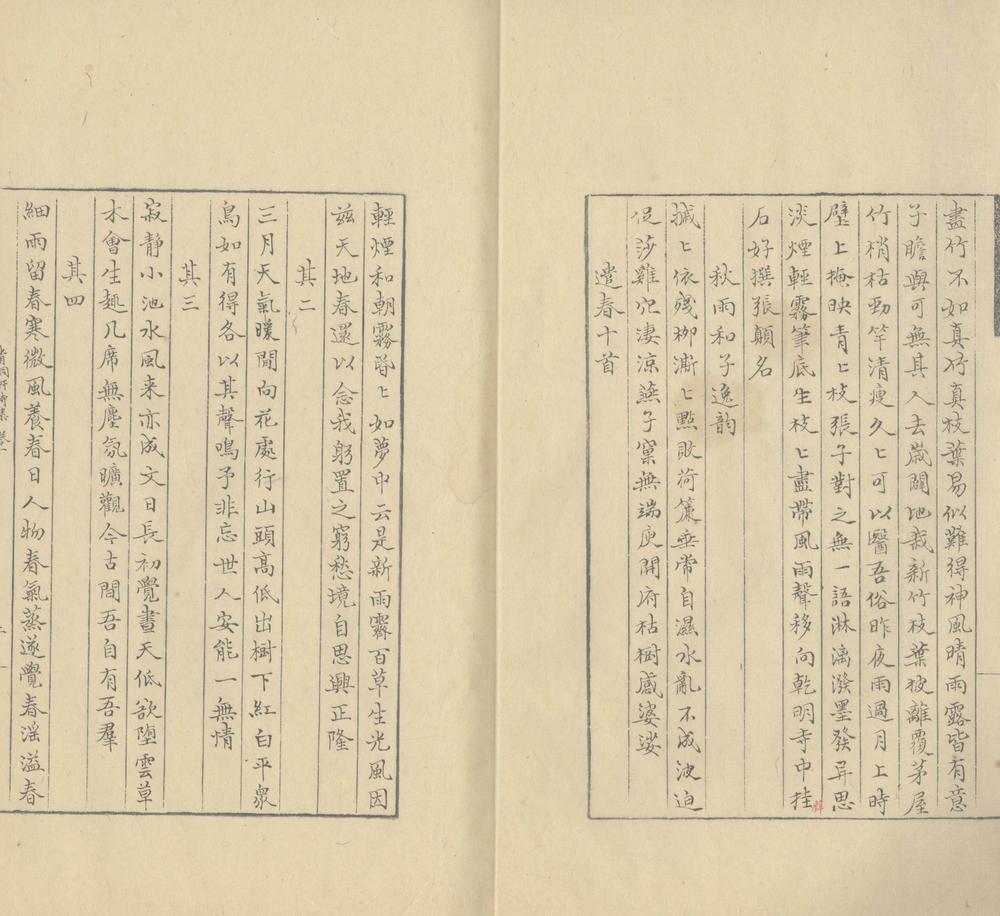 畫竹不如真竹真枝葉易似難得神風晴雨露皆有意
子瞻與可無其人去歲闢地栽新竹枝葉披離覆茅屋
竹梢枯勁竿清瘦久〻可以醫吾俗昨夜雨過月上時
壁上掩映青〻枝張子對之無一語淋漓潑墨發异思
淡煙輕霧筆底生枝〻盡帶風雨聲移向乾明寺中挂
石好撰張顛名
秋雨和子逸韵
摵〻依殘柳漸〻點敗荷簾垂常自濕水亂不成波迫
促莎雞咜淒涼燕子窠無端庾開府枯樹感婆娑
遣春十首
輕煙和朝霧昏〻如夢中云是新雨霽百草生光風因
茲天地春還以念我躬置之窮愁境自思興正隆
其二
三月天氣暖閒向花處行山頭高低出樹下紅白平衆
鳥如有得各以其聲鳴予非忘世人安能一無情
其三
寂靜小池水風来亦成文日長初覺晝天低欲墮雲草
木會生趣几席無塵氛曠觀今古間吾自有吾羣
其四
細雨留春寒微風養春日人物春氣蒸遂覺春滛溢春